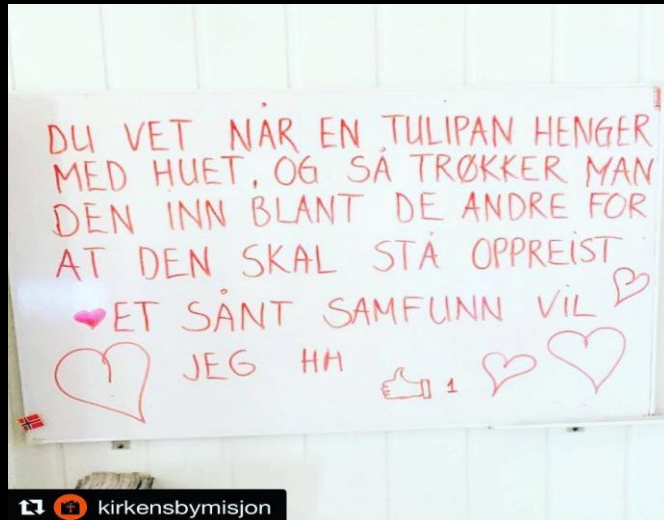 DU VET NÅR EN TULIPAN HENGER
MED HUET, OG SÅ TRØKKER MAN
DEN INN BLANT DE ANDRE FOR
AT DEN SKAL STÅ OPPREIST
ET SÅNT SAMFUNN VIL
JEG HA
1
kirkensbymisjon